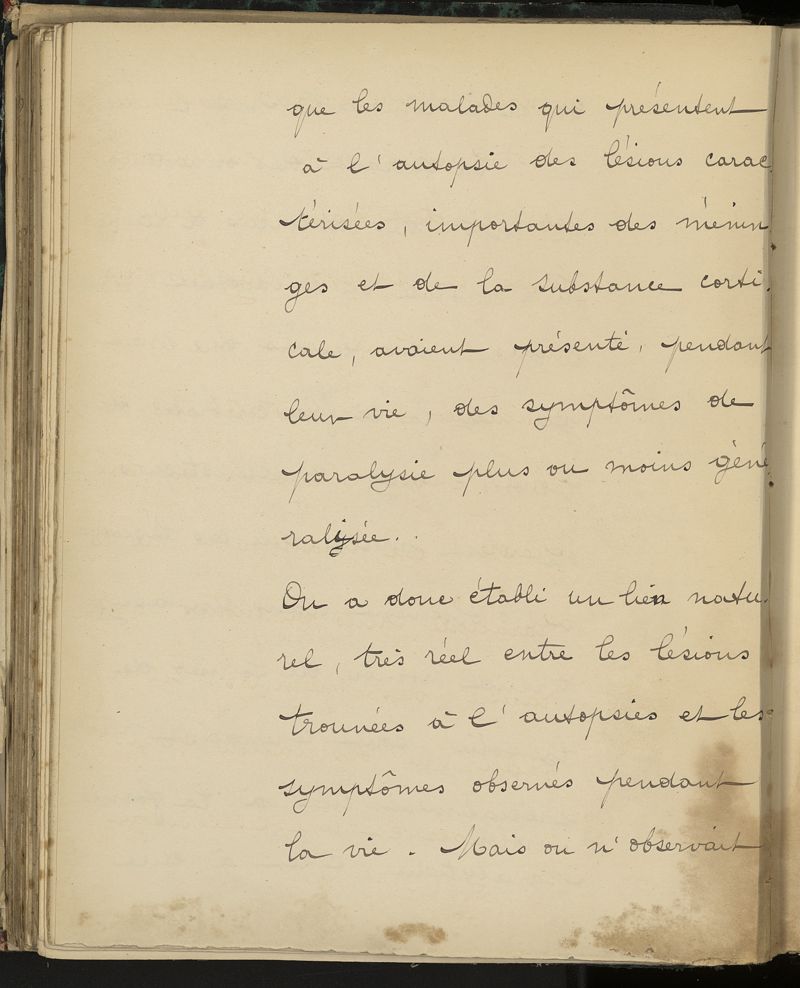 que les malades qui présentent
à l'autopsie des lésions carac
térisées, importantes des ménin
ges et de la substance corti.
cale, avaient présenté, pendant
leur vie, des symptômes de
paralysie plus ou moins géné
ralysée.
On a donc établi un lien natu.
rel, très réel entre les lésions
trouvées à l'autopsies et les
symptômes observés pendant
la vie. Mais on n'observait